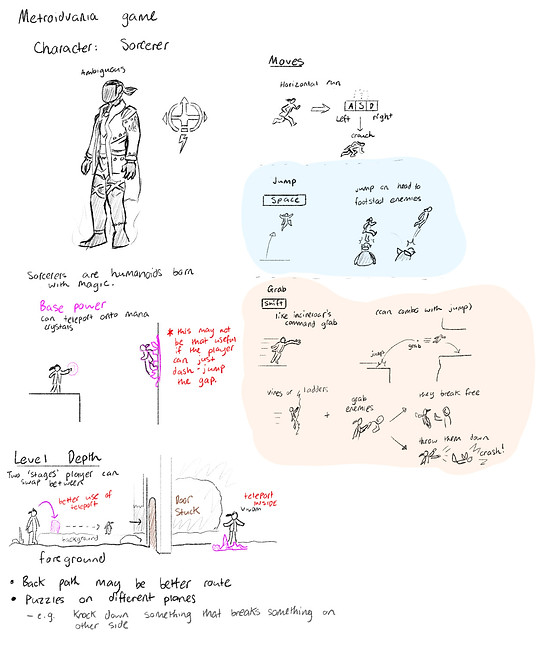 Metroidvania game
Character: Sorcerer
Ambiguous
Sorcerers are humanoids born
with magic.
Base power
can teleport onto mana
crystals
* this may not
be that useful
if the player
can just
dash-jump
the gap.
Moves
Horizontal run
A S D
Left right
crouch
Jump
Space
jump on head to
footstool enemies
Grab
Shift
like incineroar's
command grab
(can combo with jump)
jump
grab
vines or ladders
+
grab
enemies
may break free
throw them down
crash!
Level Depth
Two 'stages' player can
swap between
better use of
teleport
background
foreground
Door
Stuck
teleport
INSIDE
• Back path may be better route
• Puzzles on different planes
- e.g. Knock down something that breaks something on
other side